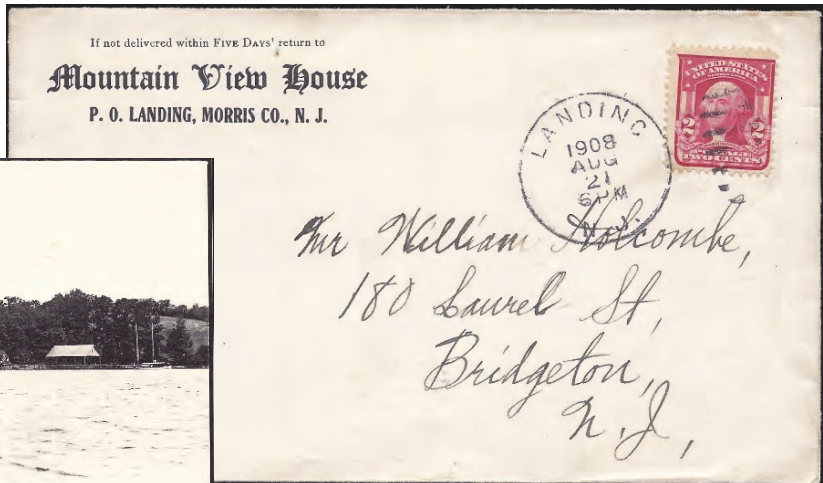 If not delivered within FIVE DAYS' return to
Mountain View House
P. O. LANDING, MORRIS CO., N. J.
LANDING
1908
AUG
21
6PM
N.J.
UNITED STATES
OF AMERICA
2 2
TWO CENTS
Mr William Holcombe,
180 Laurel St,
Bridgeton,
N.J,